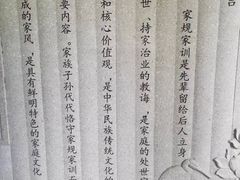 言
家规家训是先辈留给后人立身
世、持家治业的教诲，是家庭的处世
和核心价值观，是中华民族传统文化的
要内容。家族子孙代代恪守家规家训
成的家风，是具有鲜明特色的家庭文化